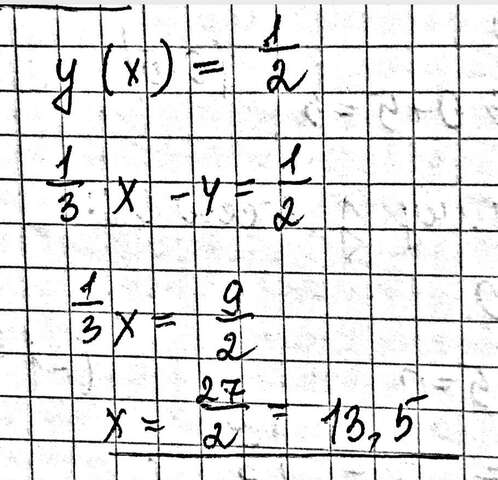 y(x) = 1/2
1/3 x - 4 = 1/2
1/3 x = 9/2
x = 27/2 = 13,5